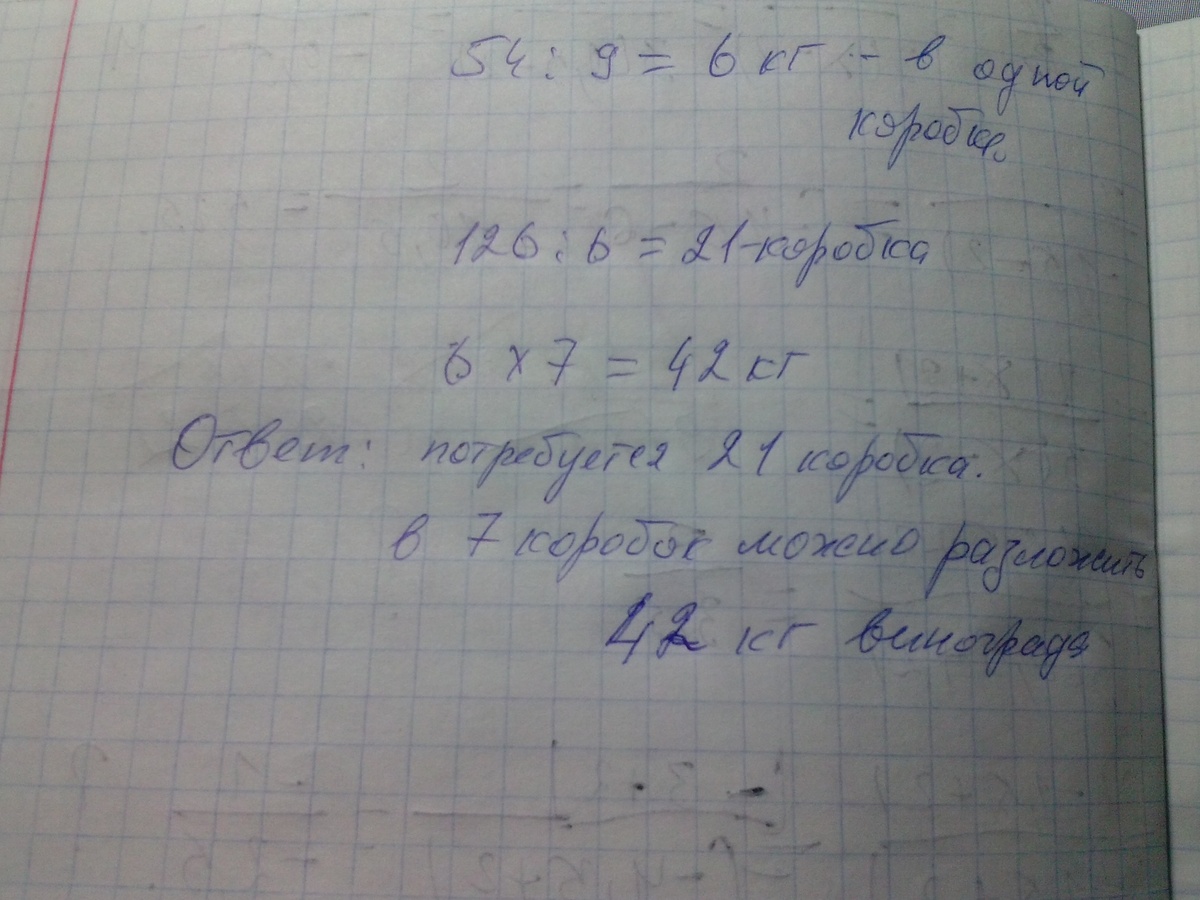 54 : 9 = 6 кг - в одной
коробке.
126 : 6 = 21-коробка
6 х 7 = 42 кг
Ответ: потребуется 21 коробка.
в 7 коробок можно разложить
42 кг винограда